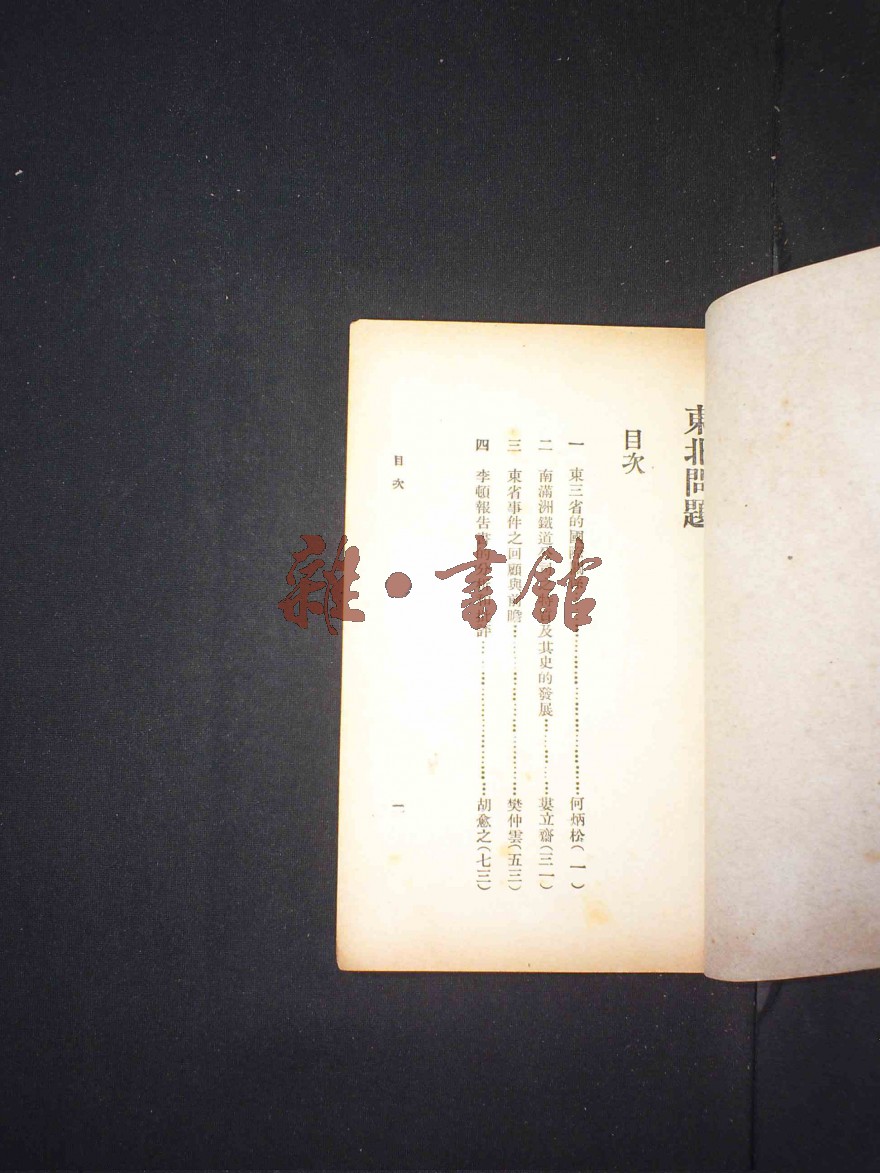 東北問題
目次
一 東三省的國際……………………何炳松(一)
二 南滿洲鐵道 及其史的發展…………婁立齋(三一)
三 東省事件之回顧與前瞻……………………樊仲雲(五三)
四 李頓報告書的分 批評……………………胡愈之(七三)
目次
一
雜·書館